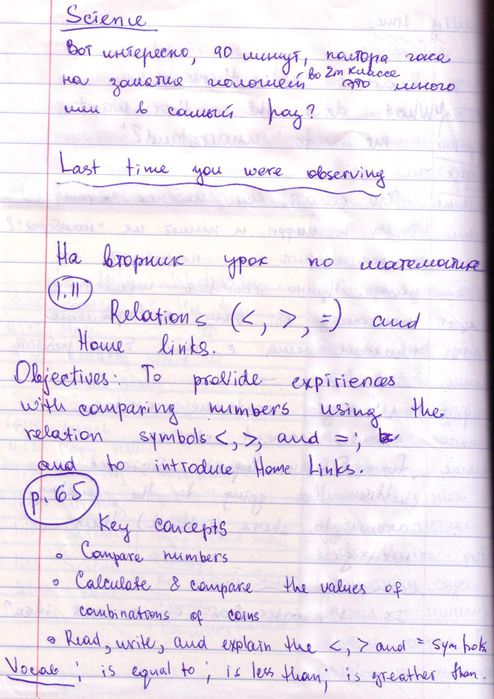 Science
Вот интересно, 90 минут, полтора часа
на занятия малышей во 2m классе это много
или в самый раз?
Last time you were observing
На вторник урок по математике
1.11
Relations (<, >, =) and
Home links.
Objectives: To provide expiriences
with comparing numbers using the
relation symbols <, >, and =;
and to introduce Home Links.
p. 65
Key concepts
• Compare numbers
• Calculate & compare the values of
combinations of coins
• Read, write, and explain the <, > and = symbols
Vocab; is equal to; is less than; is greather than.